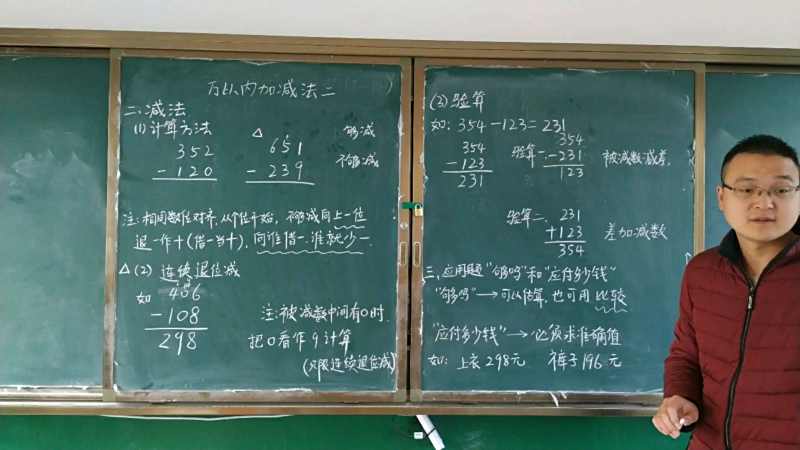 万以内加减法二
二、减法
(1)计算方法
352
- 120
△
651
- 239
够减
不够减
注:相同数位对齐,从个位开始,不够减向上一位
退一作十(借一当十),向谁借一,谁就少一.
△(2) 连续退位减
如 406
- 108
298
注:被减数中间有0时.
把0看作9计算
(只限连续退位减)
(3)验算
如: 354-123=231
354
- 123
231
验算一、
354
- 231
123
被减数减差.
验算二、
231
+ 123
354
差加减数
三、应用题"够吗"和"应付多少钱"
"够吗"→可以估算,也可用比较
"应付多少钱"→必须求准确值
如: 上衣298元 裤子196元